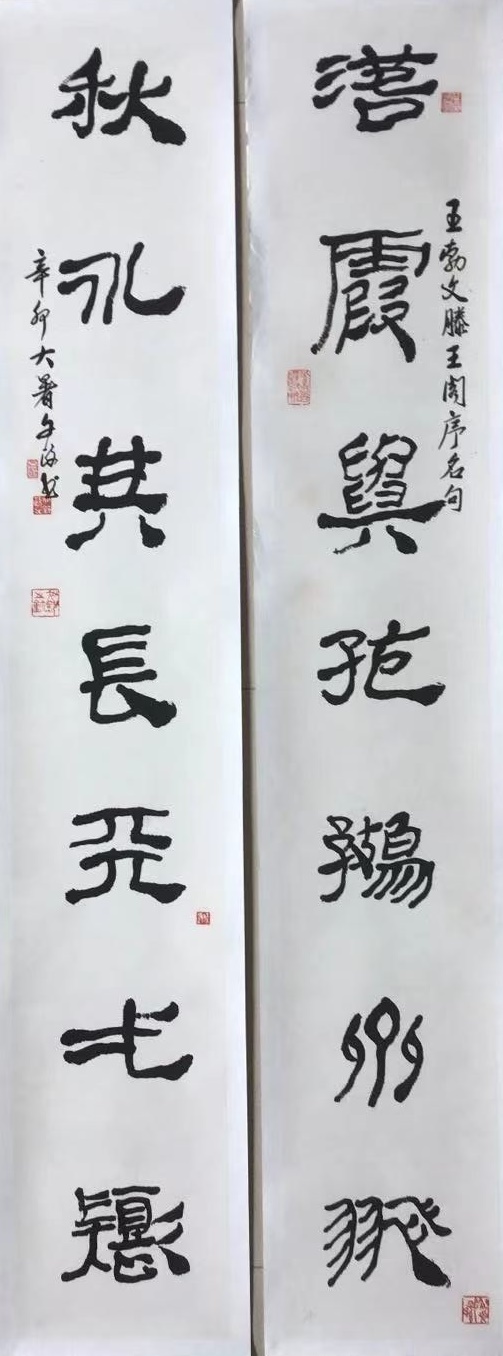 落霞與孤鶩齊飛
王勃文滕王阁序名句
秋水共長天弌色
辛卯大暑